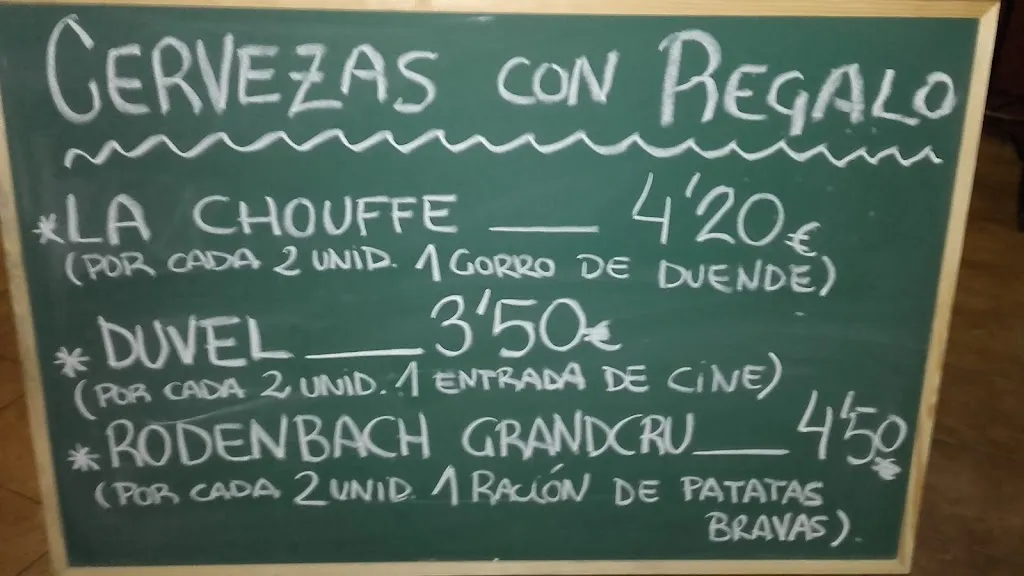 CERVEZAS CON REGALO
*LA CHOUFFE ___ 4'20€
(POR CADA 2 UNID. 1 GORRO DE DUENDE)
*DUVEL ___ 3'50€
(POR CADA 2 UNID. 1 ENTRADA DE CINE)
*RODENBACH GRANDCRU ___ 4'50€
(POR CADA 2 UNID. 1 RACIÓN DE PATATAS
BRAVAS).